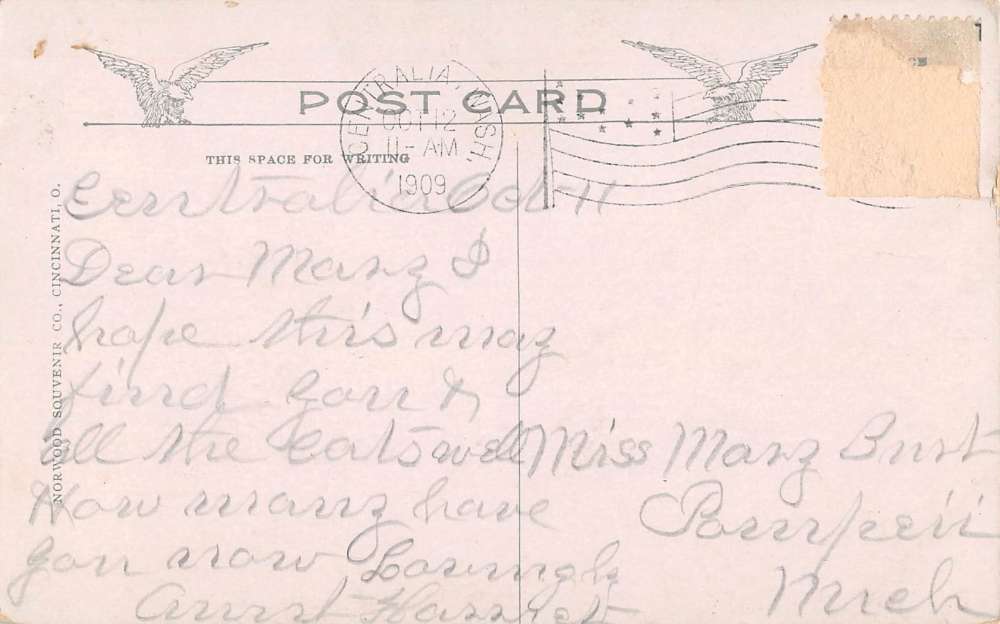 POST CARD
CENTRALIA, WASH.
OCT 12
11-AM
1909
THIS SPACE FOR WRITING
NORWOOD SOUVENIR CO., CINCINNATI, O.
Centralia Oct 11
Dear Mary I
hope this may
find you &
all the Cats well
How many have
you now Lovingly
Aunt Harriet
Miss Mary Burt
Pompeii
Mich